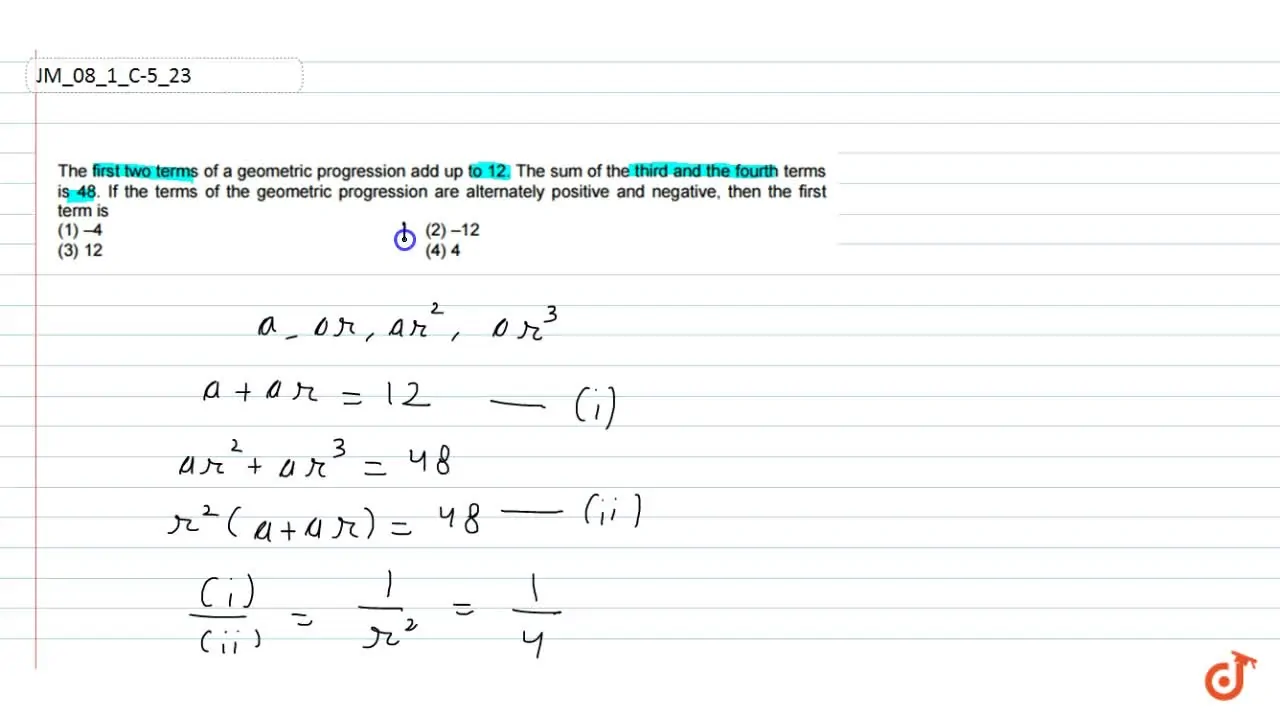 JM_08_1_C-5_23
The first two terms of a geometric progression add up to 12. The sum of the third and the fourth terms
is 48. If the terms of the geometric progression are alternately positive and negative, then the first
term is
(1) –4 (2) –12
(3) 12 (4) 4
a - ar, ar², ar³
a + ar = 12 — (i)
ar² + ar³ = 48
r² (a + ar) = 48 — (ii)
(i)/(ii) = 1/r² = 1/4